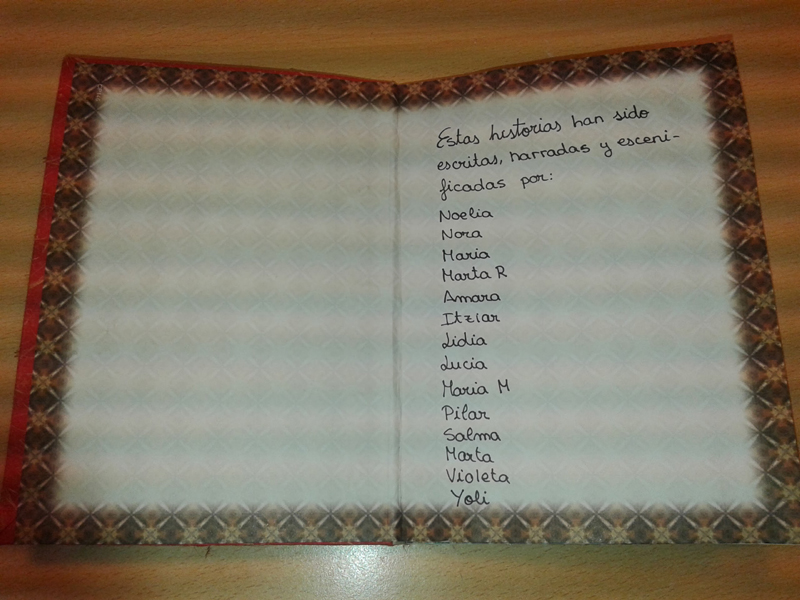 Estas historias han sido
escritas, narradas y esceni-
ficadas por:
Noelia
Nora
Maria
Marta R
Amara
Itziar
Lidia
Lucia
Maria M
Pilar
Salma
Marta
Violeta
Yoli